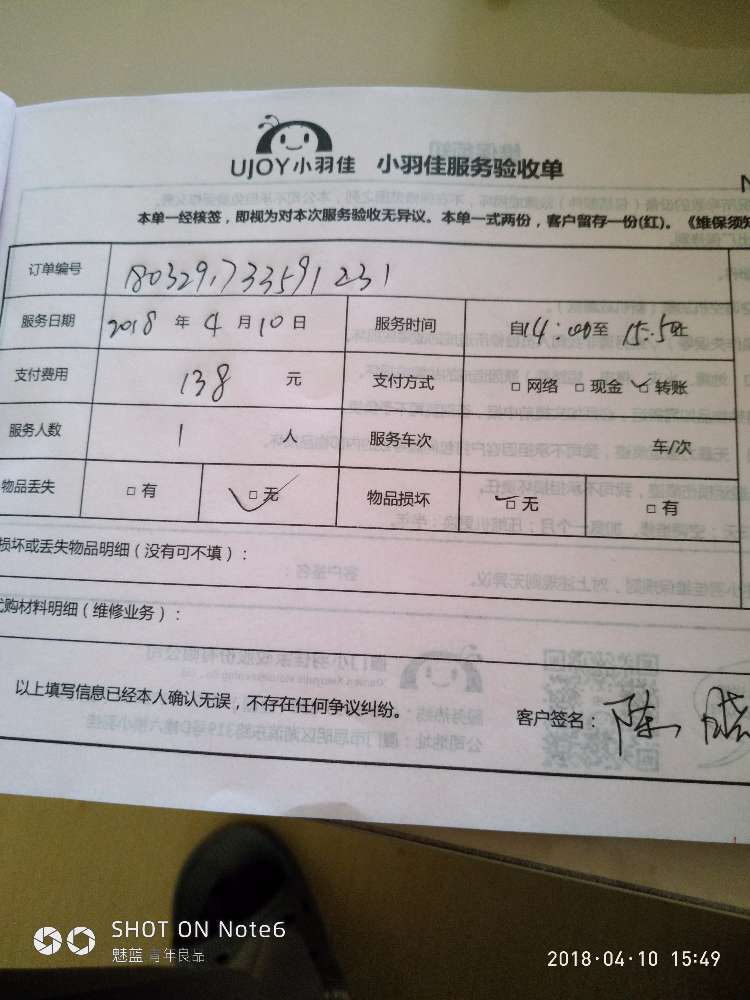 UJOY小羽佳 小羽佳服务验收单
本单一经核签，即视为对本次服务验收无异议。本单一式两份，客户留存一份(红)。《维保须知
订单编号 1803291733591231
服务日期 2018 年 4 月 10 日 服务时间 自14:00至 15:50止
支付费用 138 元 支付方式 □ 网络 □ 现金 ☑ 转账
服务人数 1 人 服务车次 车/次
物品丢失 □ 有 ☑ 无 物品损坏 ☑ 无 □ 有
损坏或丢失物品明细（没有可不填）：
代购材料明细（维修业务）：
以上填写信息已经本人确认无误，不存在任何争议纠纷。 客户签名：陈
SHOT ON Note6
魅蓝 青年良品
2018·04·10 15:49